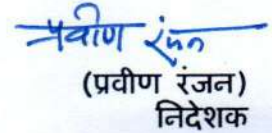 प्रवीण रंजन
(प्रवीण रंजन)
निदेशक